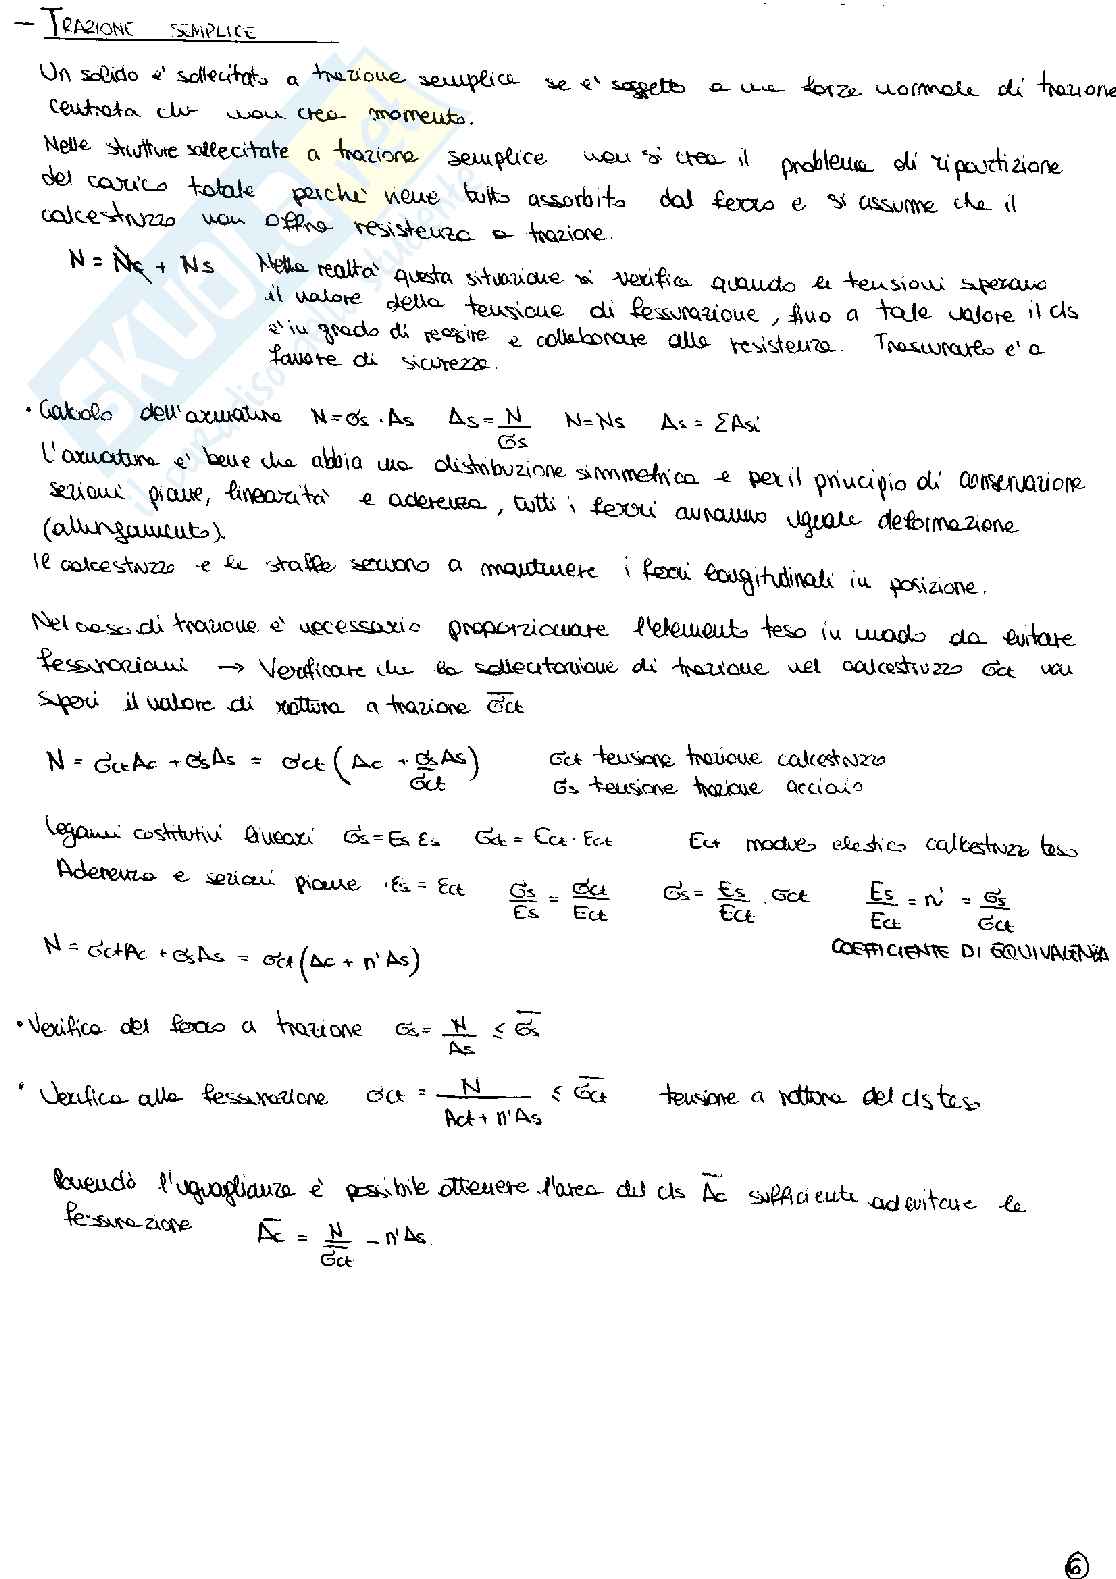 – TRAZIONE SEMPLICE
Un solido è sollecitato a trazione semplice se è soggetto a una forza normale di trazione
centrata che non crea momento.
Nelle strutture sollecitate a trazione semplice non si crea il problema di ripartizione
del carico totale perchè viene tutto assorbito dal ferro e si assume che il
calcestruzzo non offra resistenza a trazione.
N = Nc + Ns Nella realtà questa situazione si verifica quando le tensioni superano
il valore della tensione di fessurazione, fino a tale valore il cls
è in grado di reagire e collaborare alla resistenza. Trascurarlo è a
favore di sicurezza.
• Calcolo dell'armatura N = σs · As As = N/σs N = Ns As = ΣAsi
L'armatura è bene che abbia una distribuzione simmetrica e per il principio di conservazione
sezioni piane, linearità e aderenza, tutti i ferri avranno uguale deformazione
(allungamento).
Il calcestruzzo e le staffe servono a mantenere i ferri longitudinali in posizione.
Nel caso di trazione è necessario proporzionare l'elemento teso in modo da evitare
fessurazioni → Verificare che la sollecitazione di trazione nel calcestruzzo σct non
superi il valore di rottura a trazione σ̅ct
N = σctAc + σsAs = σct (Ac + σsAs/σct) σct tensione trazione calcestruzzo
σs tensione trazione acciaio
Legami costitutivi lineari σs = Es εs σct = Ect · εct Ect modulo elastico calcestruzzo teso
Aderenza e sezioni piane · εs = εct σs/Es = σct/Ect σs = Es/Ect · σct Es/Ect = n' = σs/σct
N = σctAc + σsAs = σct (Ac + n'As) COEFFICIENTE DI EQUIVALENZA
• Verifica del ferro a trazione σs = N/As ≤ σ̅s
• Verifica alla fessurazione σct = N/(Act + n'As) ≤ σ̅ct tensione a rottura del cls teso
Ponendo l'uguaglianza è possibile ottenere l'area del cls A̅c sufficiente ad evitare la
fessurazione A̅c = N/σ̅ct – n'As.
6